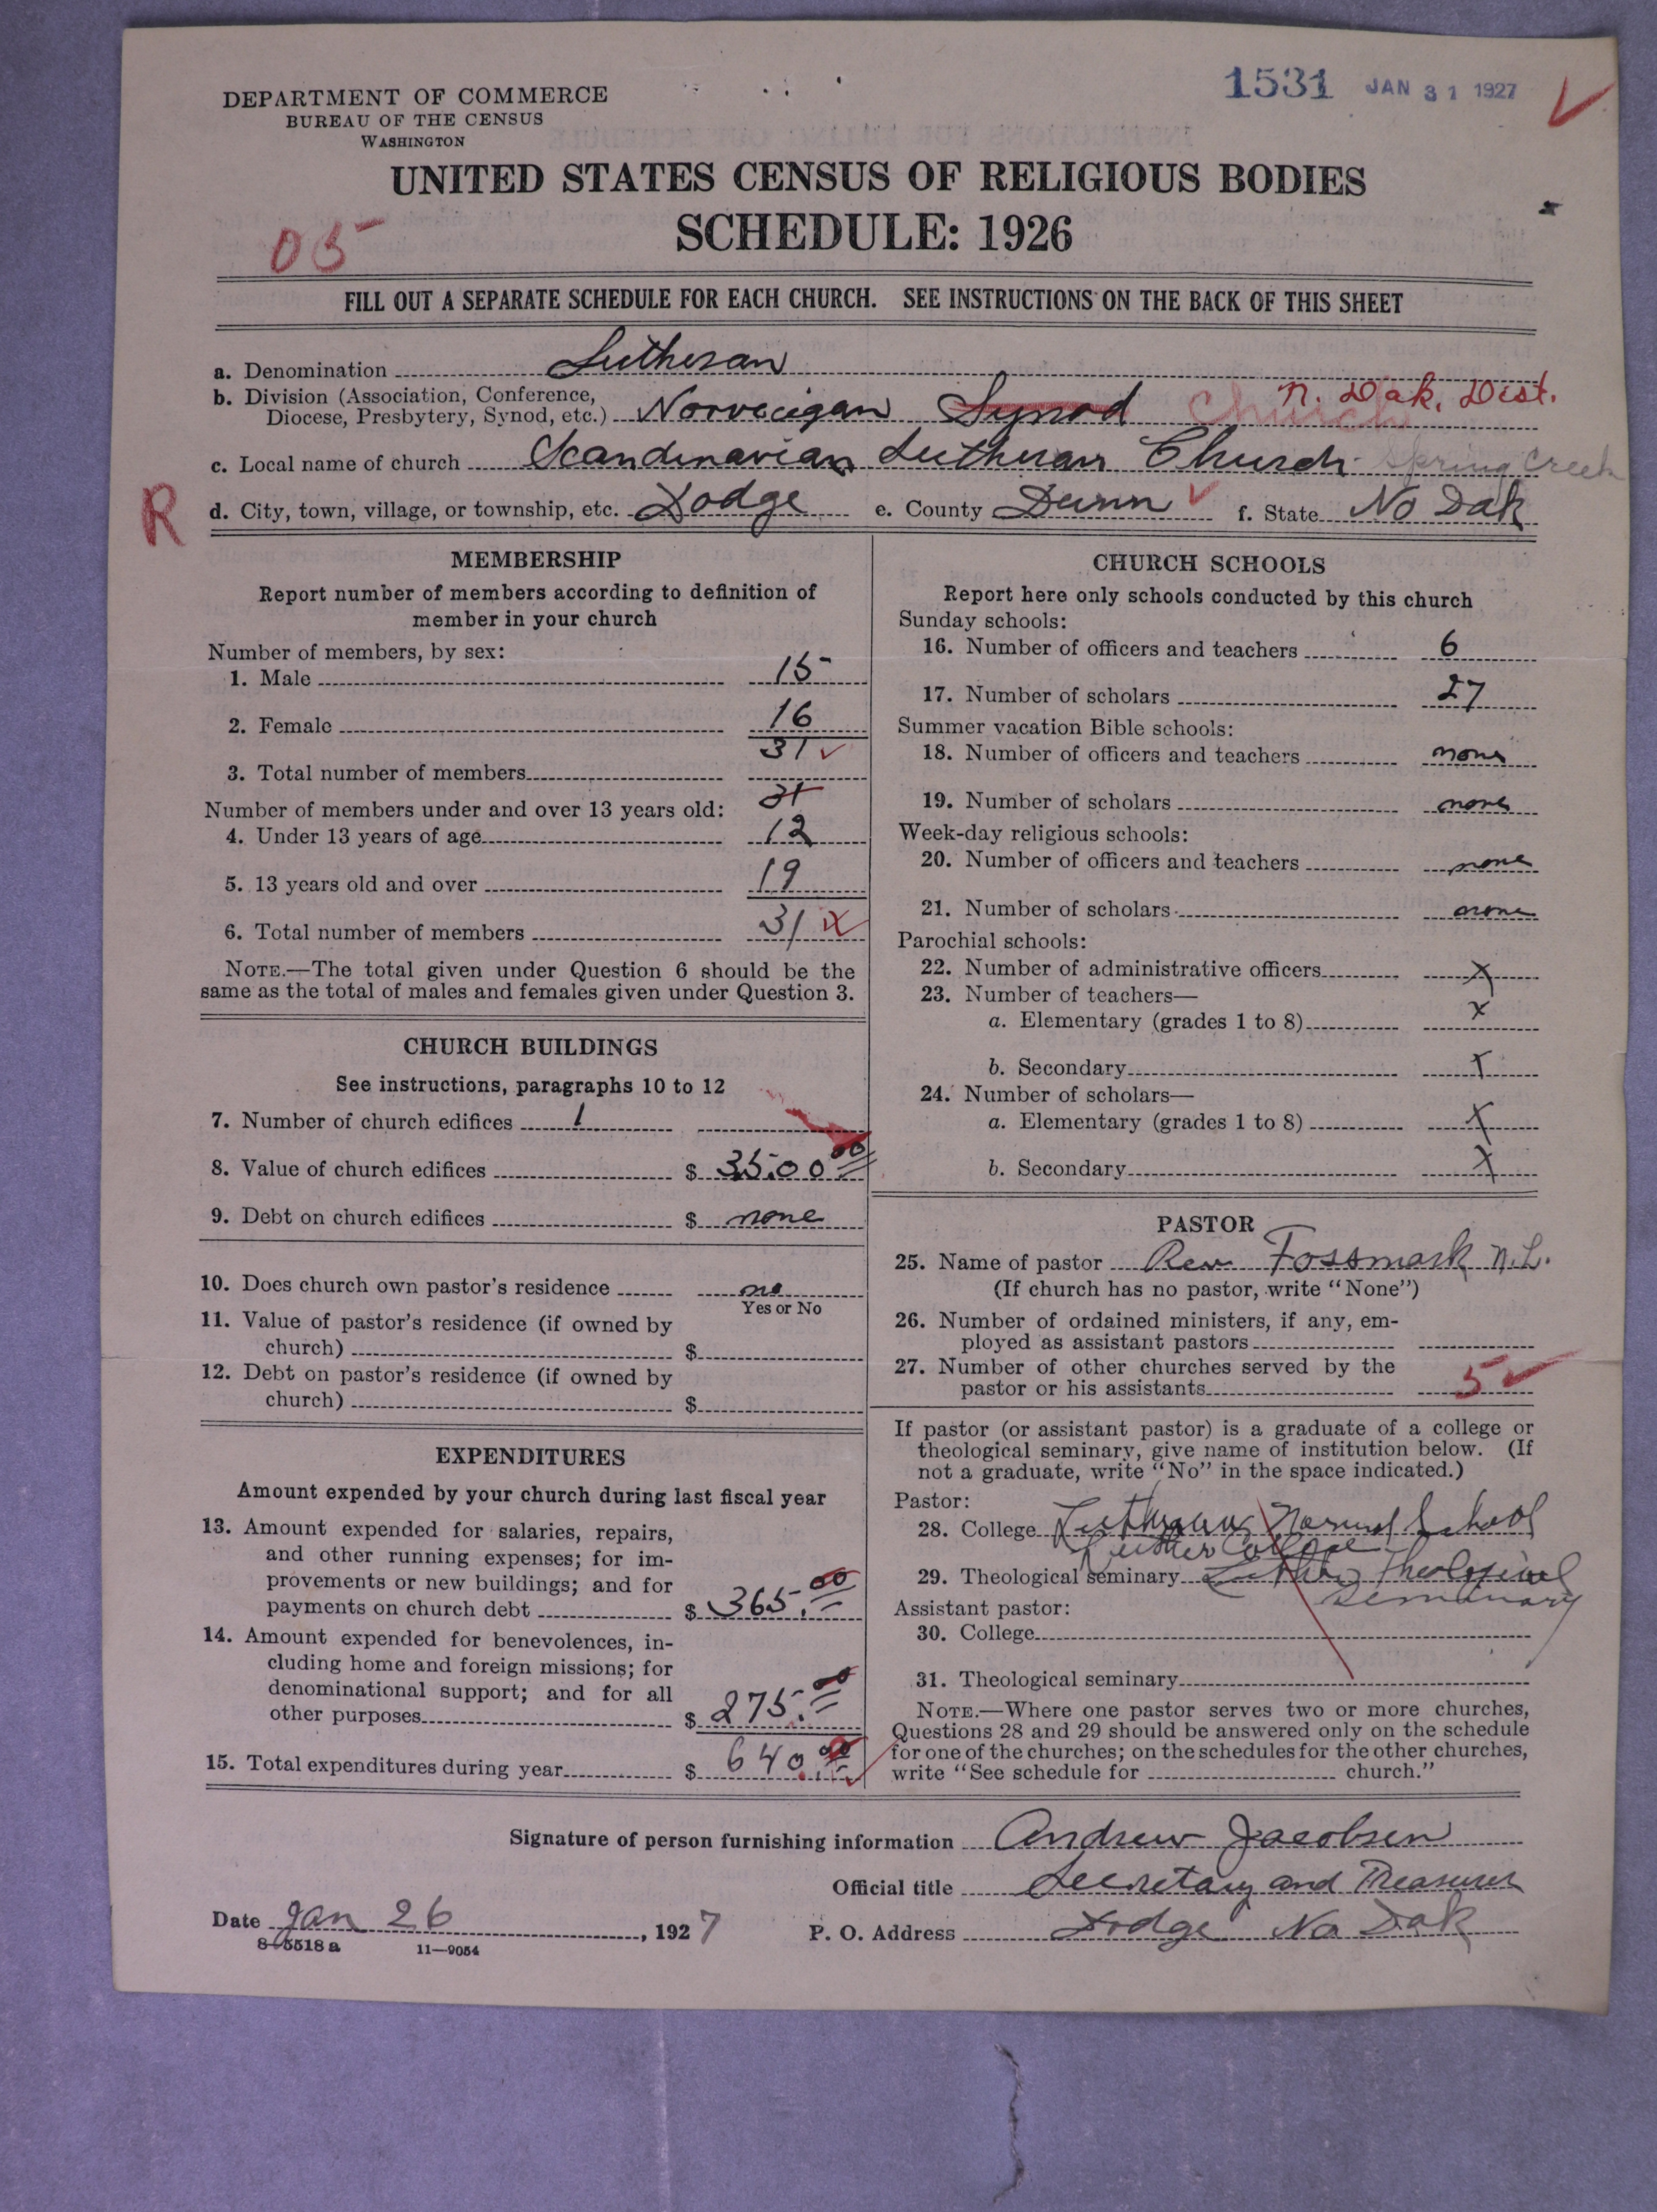 1531 JAN 31 1927
DEPARTMENT OF COMMERCE
BUREAU OF THE CENSUS
WASHINGTON
UNITED STATES CENSUS OF RELIGIOUS BODIES
SCHEDULE: 1926
05
FILL OUT A SEPARATE SCHEDULE FOR EACH CHURCH. SEE INSTRUCTIONS ON THE BACK OF THIS SHEET
a. Denomination Lutheran
b. Division (Association, Conference, N. Dak. Dist.
Diocese, Presbytery, Synod, etc.) Norvecigan Synod Church
c. Local name of church Scandinavian Lutheran Church Spring Creek
R d. City, town, village, or township, etc. Dodge e. County Dunn f. State No Dak
MEMBERSHIP
Report number of members according to definition of
member in your church
Number of members, by sex:
1. Male 15
2. Female 16
31
3. Total number of members
31
Number of members under and over 13 years old:
4. Under 13 years of age 12
5. 13 years old and over 19
6. Total number of members 31
NOTE.—The total given under Question 6 should be the
same as the total of males and females given under Question 3.
CHURCH BUILDINGS
See instructions, paragraphs 10 to 12
7. Number of church edifices 1
8. Value of church edifices $ 3500 00
9. Debt on church edifices $ none
10. Does church own pastor's residence no
Yes or No
11. Value of pastor's residence (if owned by
church) $
12. Debt on pastor's residence (if owned by
church) $
EXPENDITURES
Amount expended by your church during last fiscal year
13. Amount expended for salaries, repairs,
and other running expenses; for im-
provements or new buildings; and for
payments on church debt $ 365.00
14. Amount expended for benevolences, in-
cluding home and foreign missions; for
denominational support; and for all
other purposes $ 275.00
15. Total expenditures during year $ 640.00
CHURCH SCHOOLS
Report here only schools conducted by this church
Sunday schools:
16. Number of officers and teachers 6
17. Number of scholars 27
Summer vacation Bible schools:
18. Number of officers and teachers none
19. Number of scholars none
Week-day religious schools:
20. Number of officers and teachers none
21. Number of scholars none
Parochial schools:
22. Number of administrative officers x
23. Number of teachers—
a. Elementary (grades 1 to 8) x
b. Secondary x
24. Number of scholars—
a. Elementary (grades 1 to 8) x
b. Secondary x
PASTOR
25. Name of pastor Rev Fossmark N.L.
(If church has no pastor, write "None")
26. Number of ordained ministers, if any, em-
ployed as assistant pastors
27. Number of other churches served by the
pastor or his assistants 5
If pastor (or assistant pastor) is a graduate of a college or
theological seminary, give name of institution below. (If
not a graduate, write "No" in the space indicated.)
Pastor:
28. College Lutheran Normal School
Luther College
29. Theological seminary Luther Theological
Seminary
Assistant pastor:
30. College
31. Theological seminary
NOTE.—Where one pastor serves two or more churches,
Questions 28 and 29 should be answered only on the schedule
for one of the churches; on the schedules for the other churches,
write "See schedule for church."
Signature of person furnishing information Andrew Jacobsen
Official title Secretary and Treasurer
Date Jan 26, 1927 P. O. Address Dodge No Dak
8—5518 a 11—9054